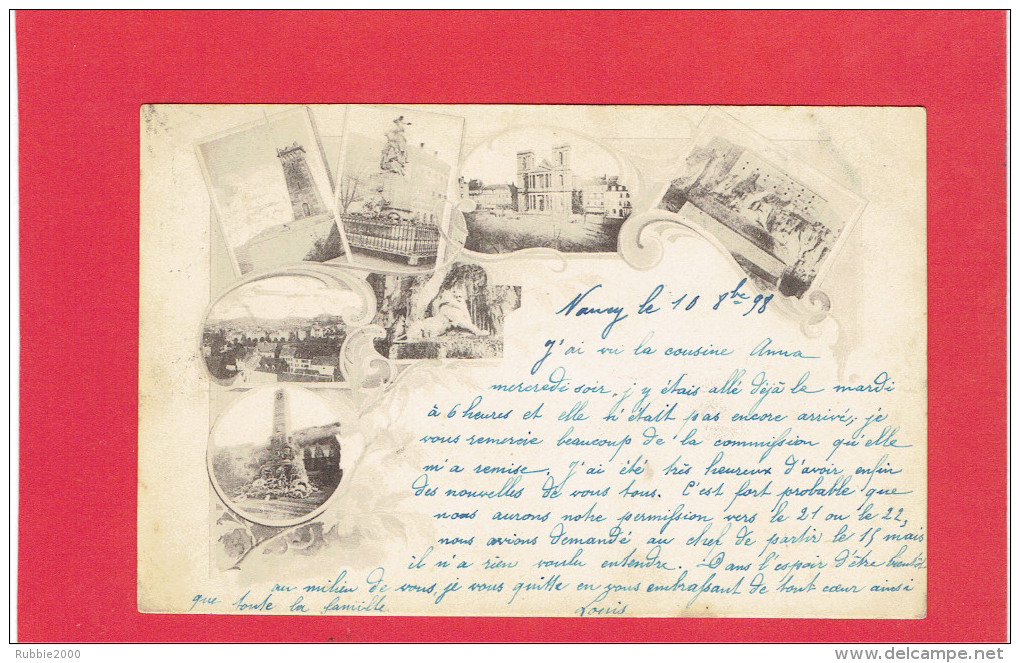 Nancy le 10 8bre 98
J'ai vu la cousine Anna
mercredi soir, j'y étais allé déjà le mardi
à 6 heures et elle n'était pas encore arrivé, je
vous remercie beaucoup de la commission qu'elle
m'a remise. J'ai été très heureux d'avoir enfin
des nouvelles de vous tous. C'est fort probable que
nous aurons notre permission vers le 21 ou le 22,
nous avions demandé au chef de partir le 15 mais
il n'a rien voulu entendre. Dans l'espoir d'être bientôt
au milieu de vous, je vous quitte en vous embrassant de tout cœur ainsi
que toute la famille Louis
Rubbie2000
www.delcampe.net